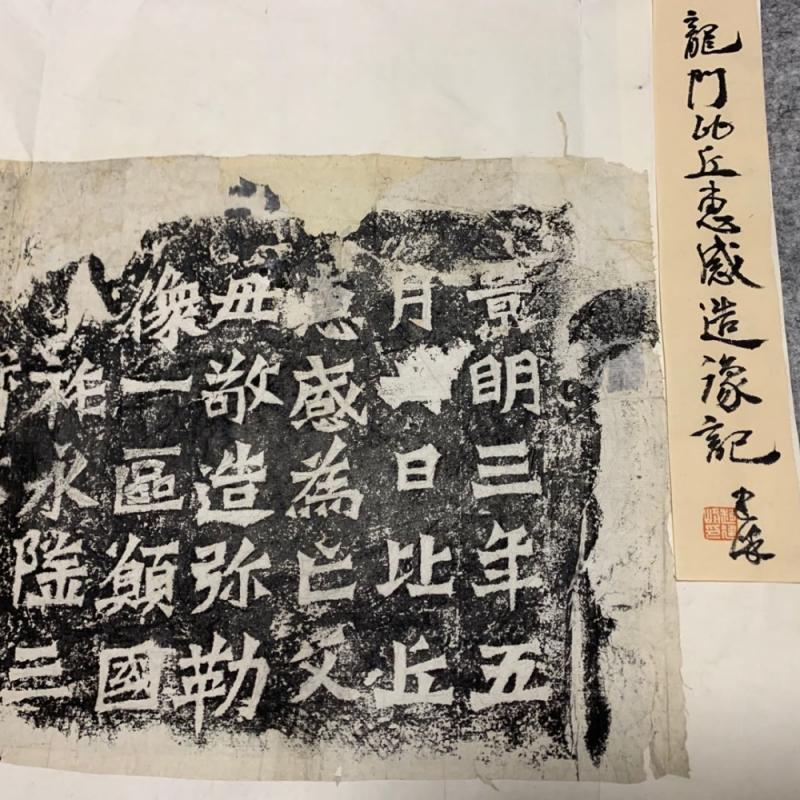 龍門比丘惠感造像記
景明三年五
月日比丘
惠感為亡父
母敬造弥勒
像一區願國
祚永隆三